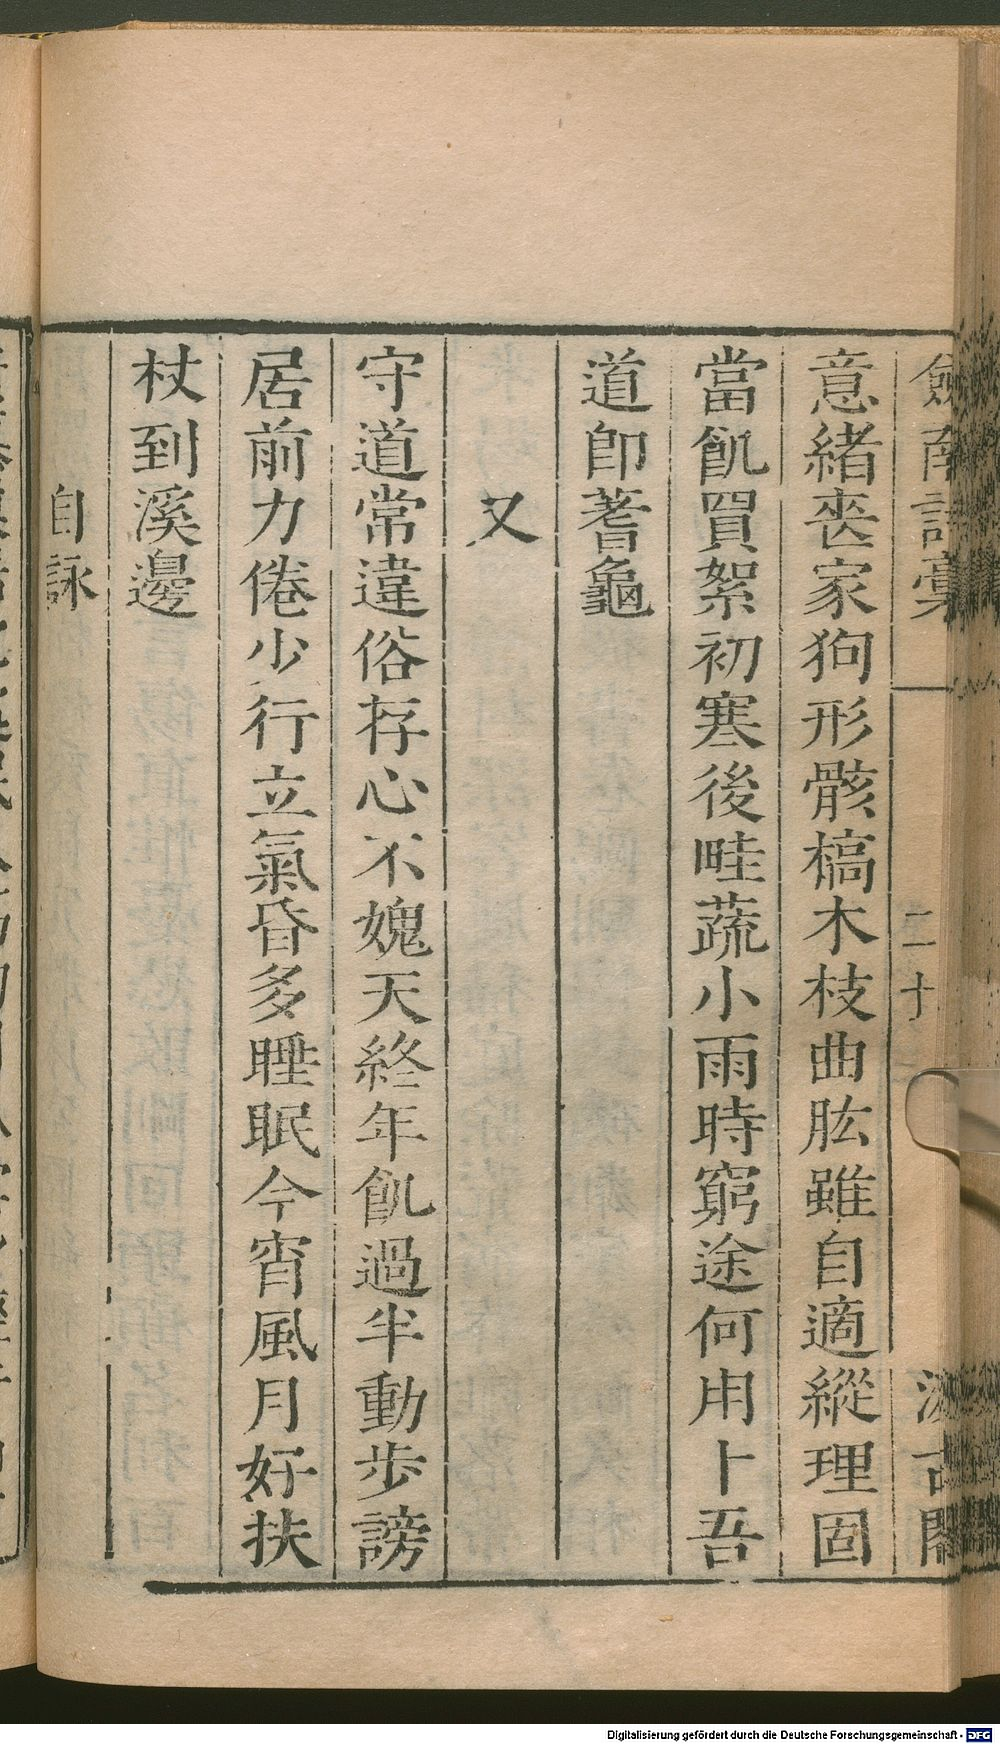 劍南詩稾 二十 汲古閣
意緒喪家狗形骸槁木枝曲肱雖自適縱理固
當飢買絮初寒後畦蔬小雨時窮途何用卜吾
道卽蓍龜
又
守道常違俗存心不媿天終年飢過半動步謗
居前力倦少行立氣昏多睡眠今宵風月好扶
杖到溪邊
自詠
Digitalisierung gefördert durch die Deutsche Forschungsgemeinschaft - DFG